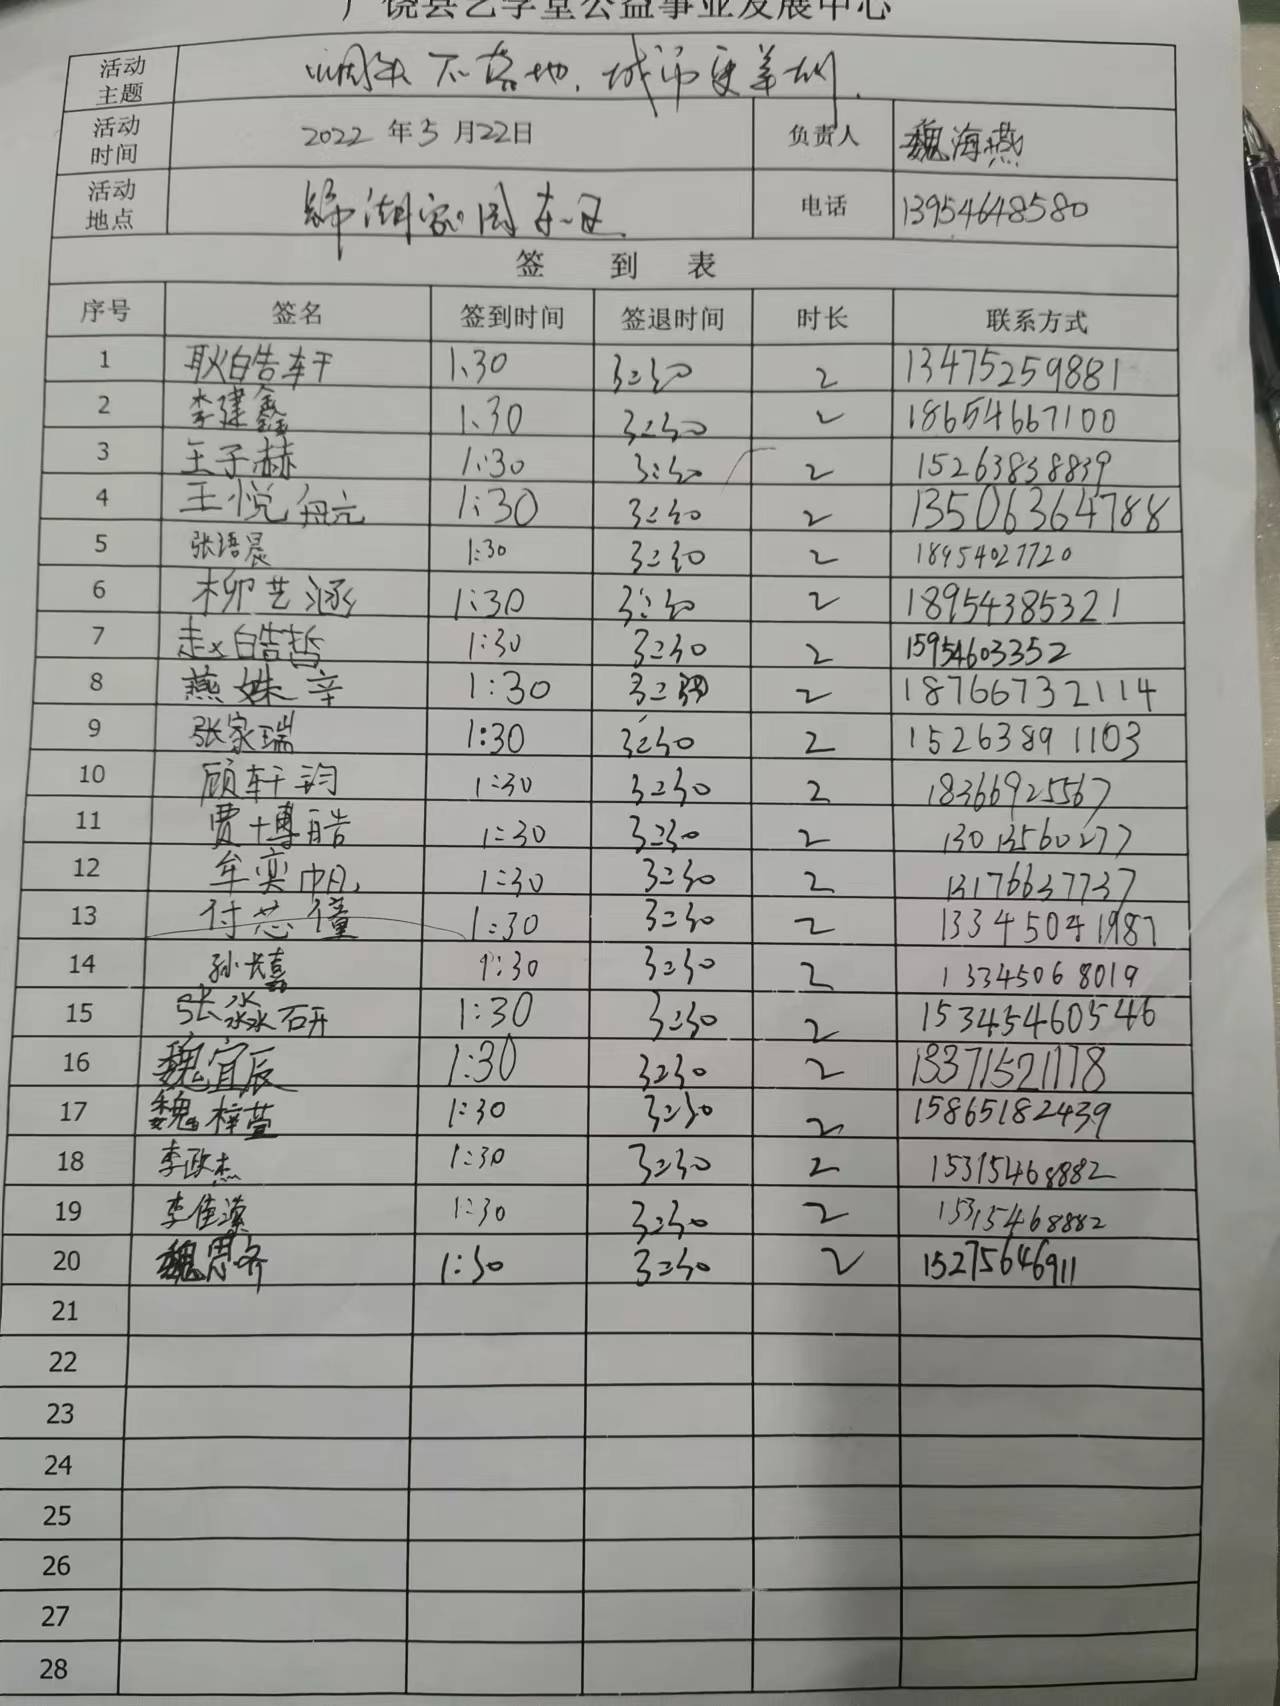 广饶县艺学堂公益事业发展中心
活动主题 烟头不落地，城市更美丽。
活动时间 2022年5月22日 负责人 魏海燕
活动地点 锦湖家园东区 电话 13954648580
签 到 表
序号 签名 签到时间 签退时间 时长 联系方式
1 耿皓轩 1:30 3:30 2 13475259881
2 李建鑫 1:30 3:30 2 18654667100
3 王子赫 1:30 3:30 2 15263838839
4 王悦 1:30 3:30 2 13506364788
5 张语晨 1:30 3:30 2 18954027720
6 柳艺涵 1:30 3:30 2 18954385321
7 赵皓哲 1:30 3:30 2 15954603352
8 燕姝辛 1:30 3:30 2 18766732114
9 张家瑞 1:30 3:30 2 15263891103
10 顾轩韵 1:30 3:30 2 18366925567
11 贾博皓 1:30 3:30 2 13013560277
12 牟奕帆 1:30 3:30 2 13176637737
13 付芯僮 1:30 3:30 2 13345041987
14 孙长嘉 1:30 3:30 2 13345068019
15 张淼研 1:30 3:30 2 15345460546
16 魏宜辰 1:30 3:30 2 13371521178
17 魏梓萱 1:30 3:30 2 15865182439
18 李政杰 1:30 3:30 2 15315468882
19 李佳 1:30 3:30 2 15315468882
20 魏思齐 1:30 3:30 2 15275646911
21
22
23
24
25
26
27
28